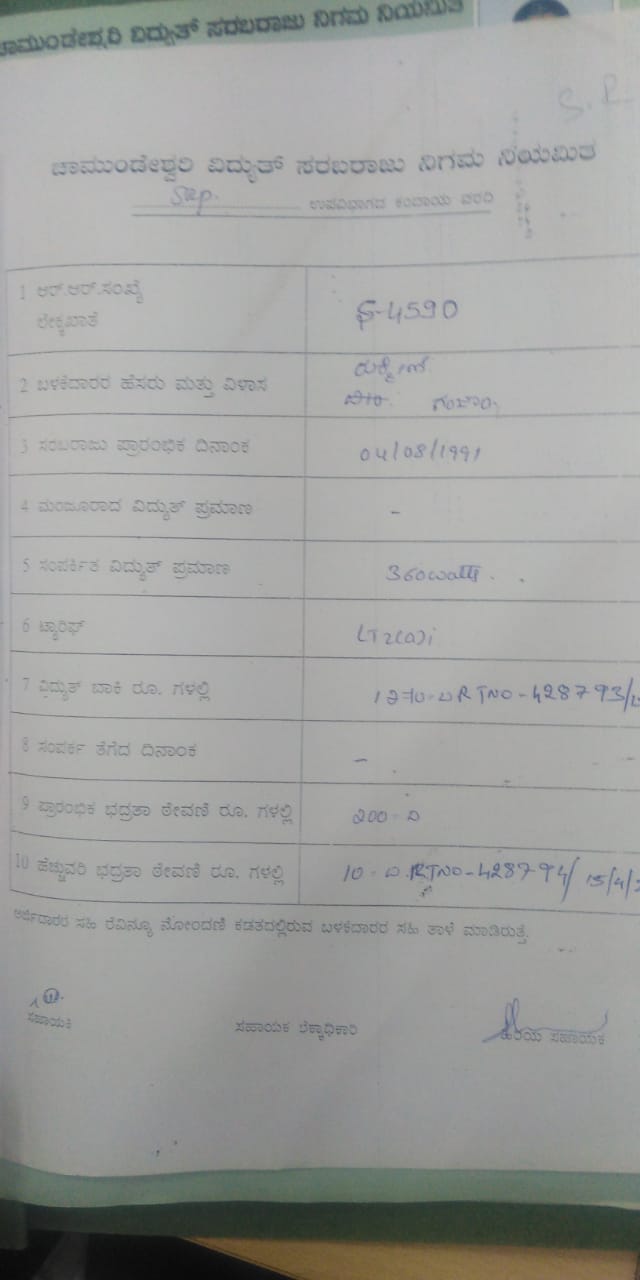 ಚಾಮುಂಡೇಶ್ವರಿ ವಿದ್ಯುತ್ ಸರಬರಾಜು ನಿಗಮ ನಿಯಮಿತ
S.R
ಚಾಮುಂಡೇಶ್ವರಿ ವಿದ್ಯುತ್ ಸರಬರಾಜು ನಿಗಮ ನಿಯಮಿತ
ಉಪವಿಭಾಗದ ಕಂದಾಯ ವರದಿ
1 ಆರ್.ಆರ್.ಸಂಖ್ಯೆ
ಲೆಕ್ಕಖಾತೆ
-4590
2 ಬಳಕೆದಾರರ ಹೆಸರು ಮತ್ತು ವಿಳಾಸ
3 ಸರಬರಾಜು ಪ್ರಾರಂಭಿಕ ದಿನಾಂಕ 04/08/1991
4 ಮಂಜೂರಾದ ವಿದ್ಯುತ್ ಪ್ರಮಾಣ -
5 ಸಂಪರ್ಕಿತ ವಿದ್ಯುತ್ ಪ್ರಮಾಣ 360watts.
6 ಟ್ಯಾರಿಫ್ LT2(a)i
7 ವಿದ್ಯುತ್ ಬಾಕಿ ರೂ. ಗಳಲ್ಲಿ RTNO-428793/
8 ಸಂಪರ್ಕ ತೆಗೆದ ದಿನಾಂಕ -
9 ಪ್ರಾರಂಭಿಕ ಭದ್ರತಾ ಠೇವಣಿ ರೂ. ಗಳಲ್ಲಿ 200-
10 ಹೆಚ್ಚುವರಿ ಭದ್ರತಾ ಠೇವಣಿ ರೂ. ಗಳಲ್ಲಿ 10- RTNO-428794/ 15/4/
ಅರ್ಜಿದಾರರ ಸಹಿ ರೆವಿನ್ಯೂ ನೋಂದಣಿ ಕಡತದಲ್ಲಿರುವ ಬಳಕೆದಾರರ ಸಹಿ ತಾಳೆ ಮಾಡಿರುತ್ತೆ.
ಸಹಾಯಕ ಸಹಾಯಕ ಲೆಕ್ಕಾಧಿಕಾರಿ ಹಿರಿಯ ಸಹಾಯಕ